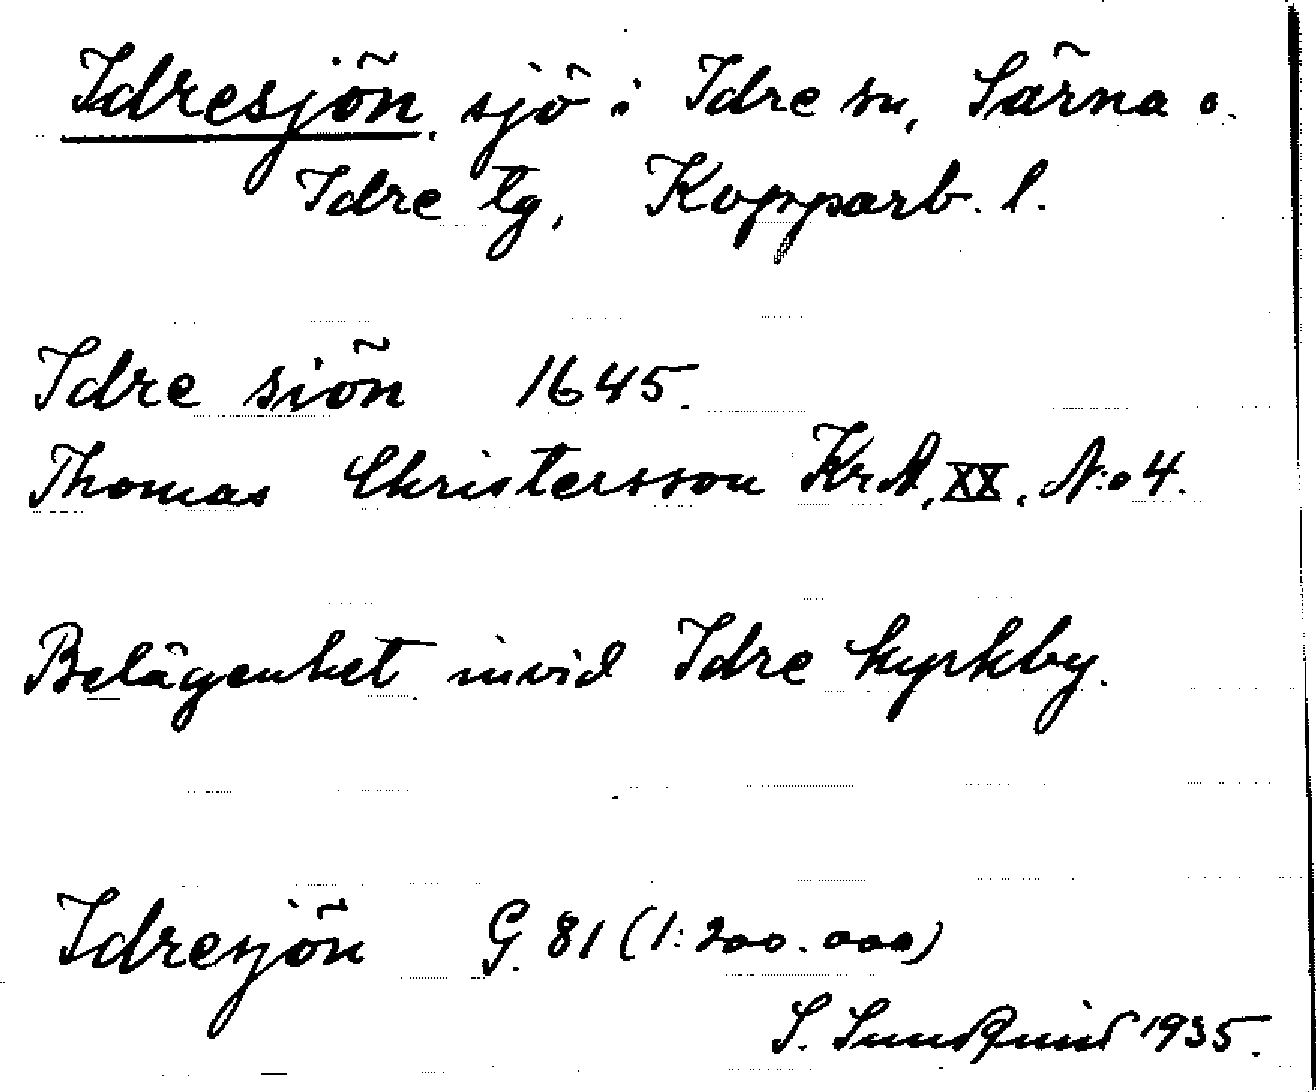 Idresjön, sjö i Idre sn, Särna o.
Idre tg, Kopparb. l.
Idre siön 1645.
Thomas Christersson KrA, XX, N:o 4.
Belägenhet invid Idre kyrkby.
Idresjön G. 81 (1:200.000)
S. Sundquist 1935.